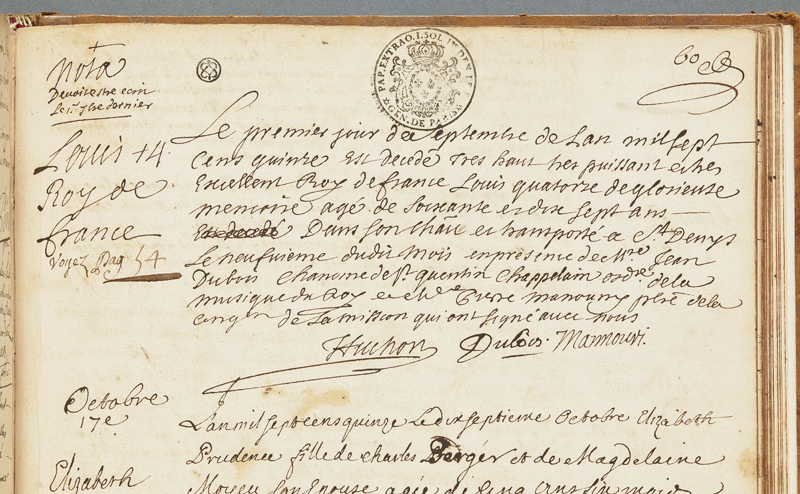 nota
Devoit estre écrit
Le 1er 7bre dernier
60
PAP. EXTRAO. 1. SOL
GEN. DE PARIS
Louis +4.
Roy de
france
Voyez Pag 54
Le premier jour de septembre de Lan mil sept
Cens quinze Est decedé tres haut tres puissant et tres
Excellent Roy de france Louis quatorze de glorieuse
memoire agé de soixante et dix sept ans
Dans son chau et transporté a St Denys
Le neufieme dudit mois en presence de Mre Jean
Dubois Chanoine de St quentin Chappelain ordre de la
musique du Roy et de Mre Pierre manoury prere de la
de La mission qui ont signé avec nous
Huchon Dubois. Mannoury.
Octobre
17e
Lan mil sept cens quinze Le dix septieme Octobre Elizabeth
Prudence fille de charles Berger et de Magdelaine
Elizabeth
son Epouse agée de cinq ans six mois